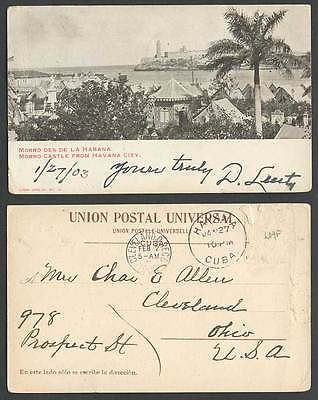 MORRO DES DE LA HABANA.
MORRO CASTLE FROM HAVANA CITY.
1/27/03 Yours truly D.
UNION POSTAL UNIVERSAL
UNION POSTALE UNIVERSELLE
CUBA
CLEVELAND
FEB 2
5-AM
JAN 27
10 PM
CUBA
Mrs Chas E Allen
Cleveland
978
Ohio
Prospect St
U.S.A
En este lado sólo se escribe la dirección.